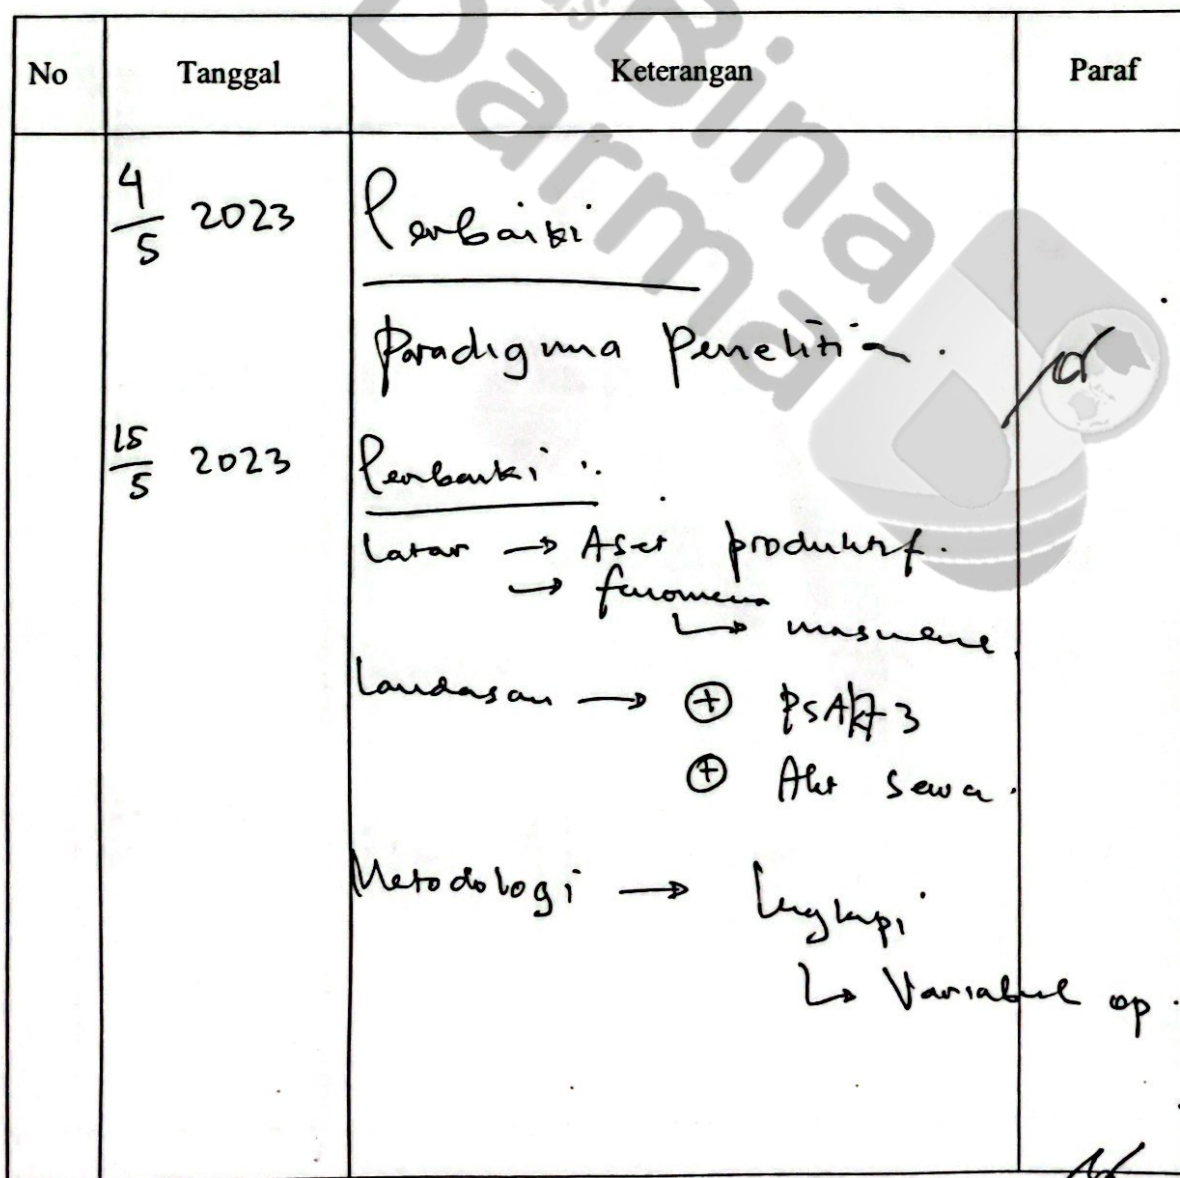 No Tanggal Keterangan Paraf
4/5 2023 Perbaiki
Paradigma Penelitian.
15/5 2023 Perbaiki :
Latar → Aset produktif.
→ fenomena
↳
Landasan → ⊕ PSAK 73
⊕ Akt sewa.
Metodologi → lengkapi
↳ Variabel op.
Bina
Darma